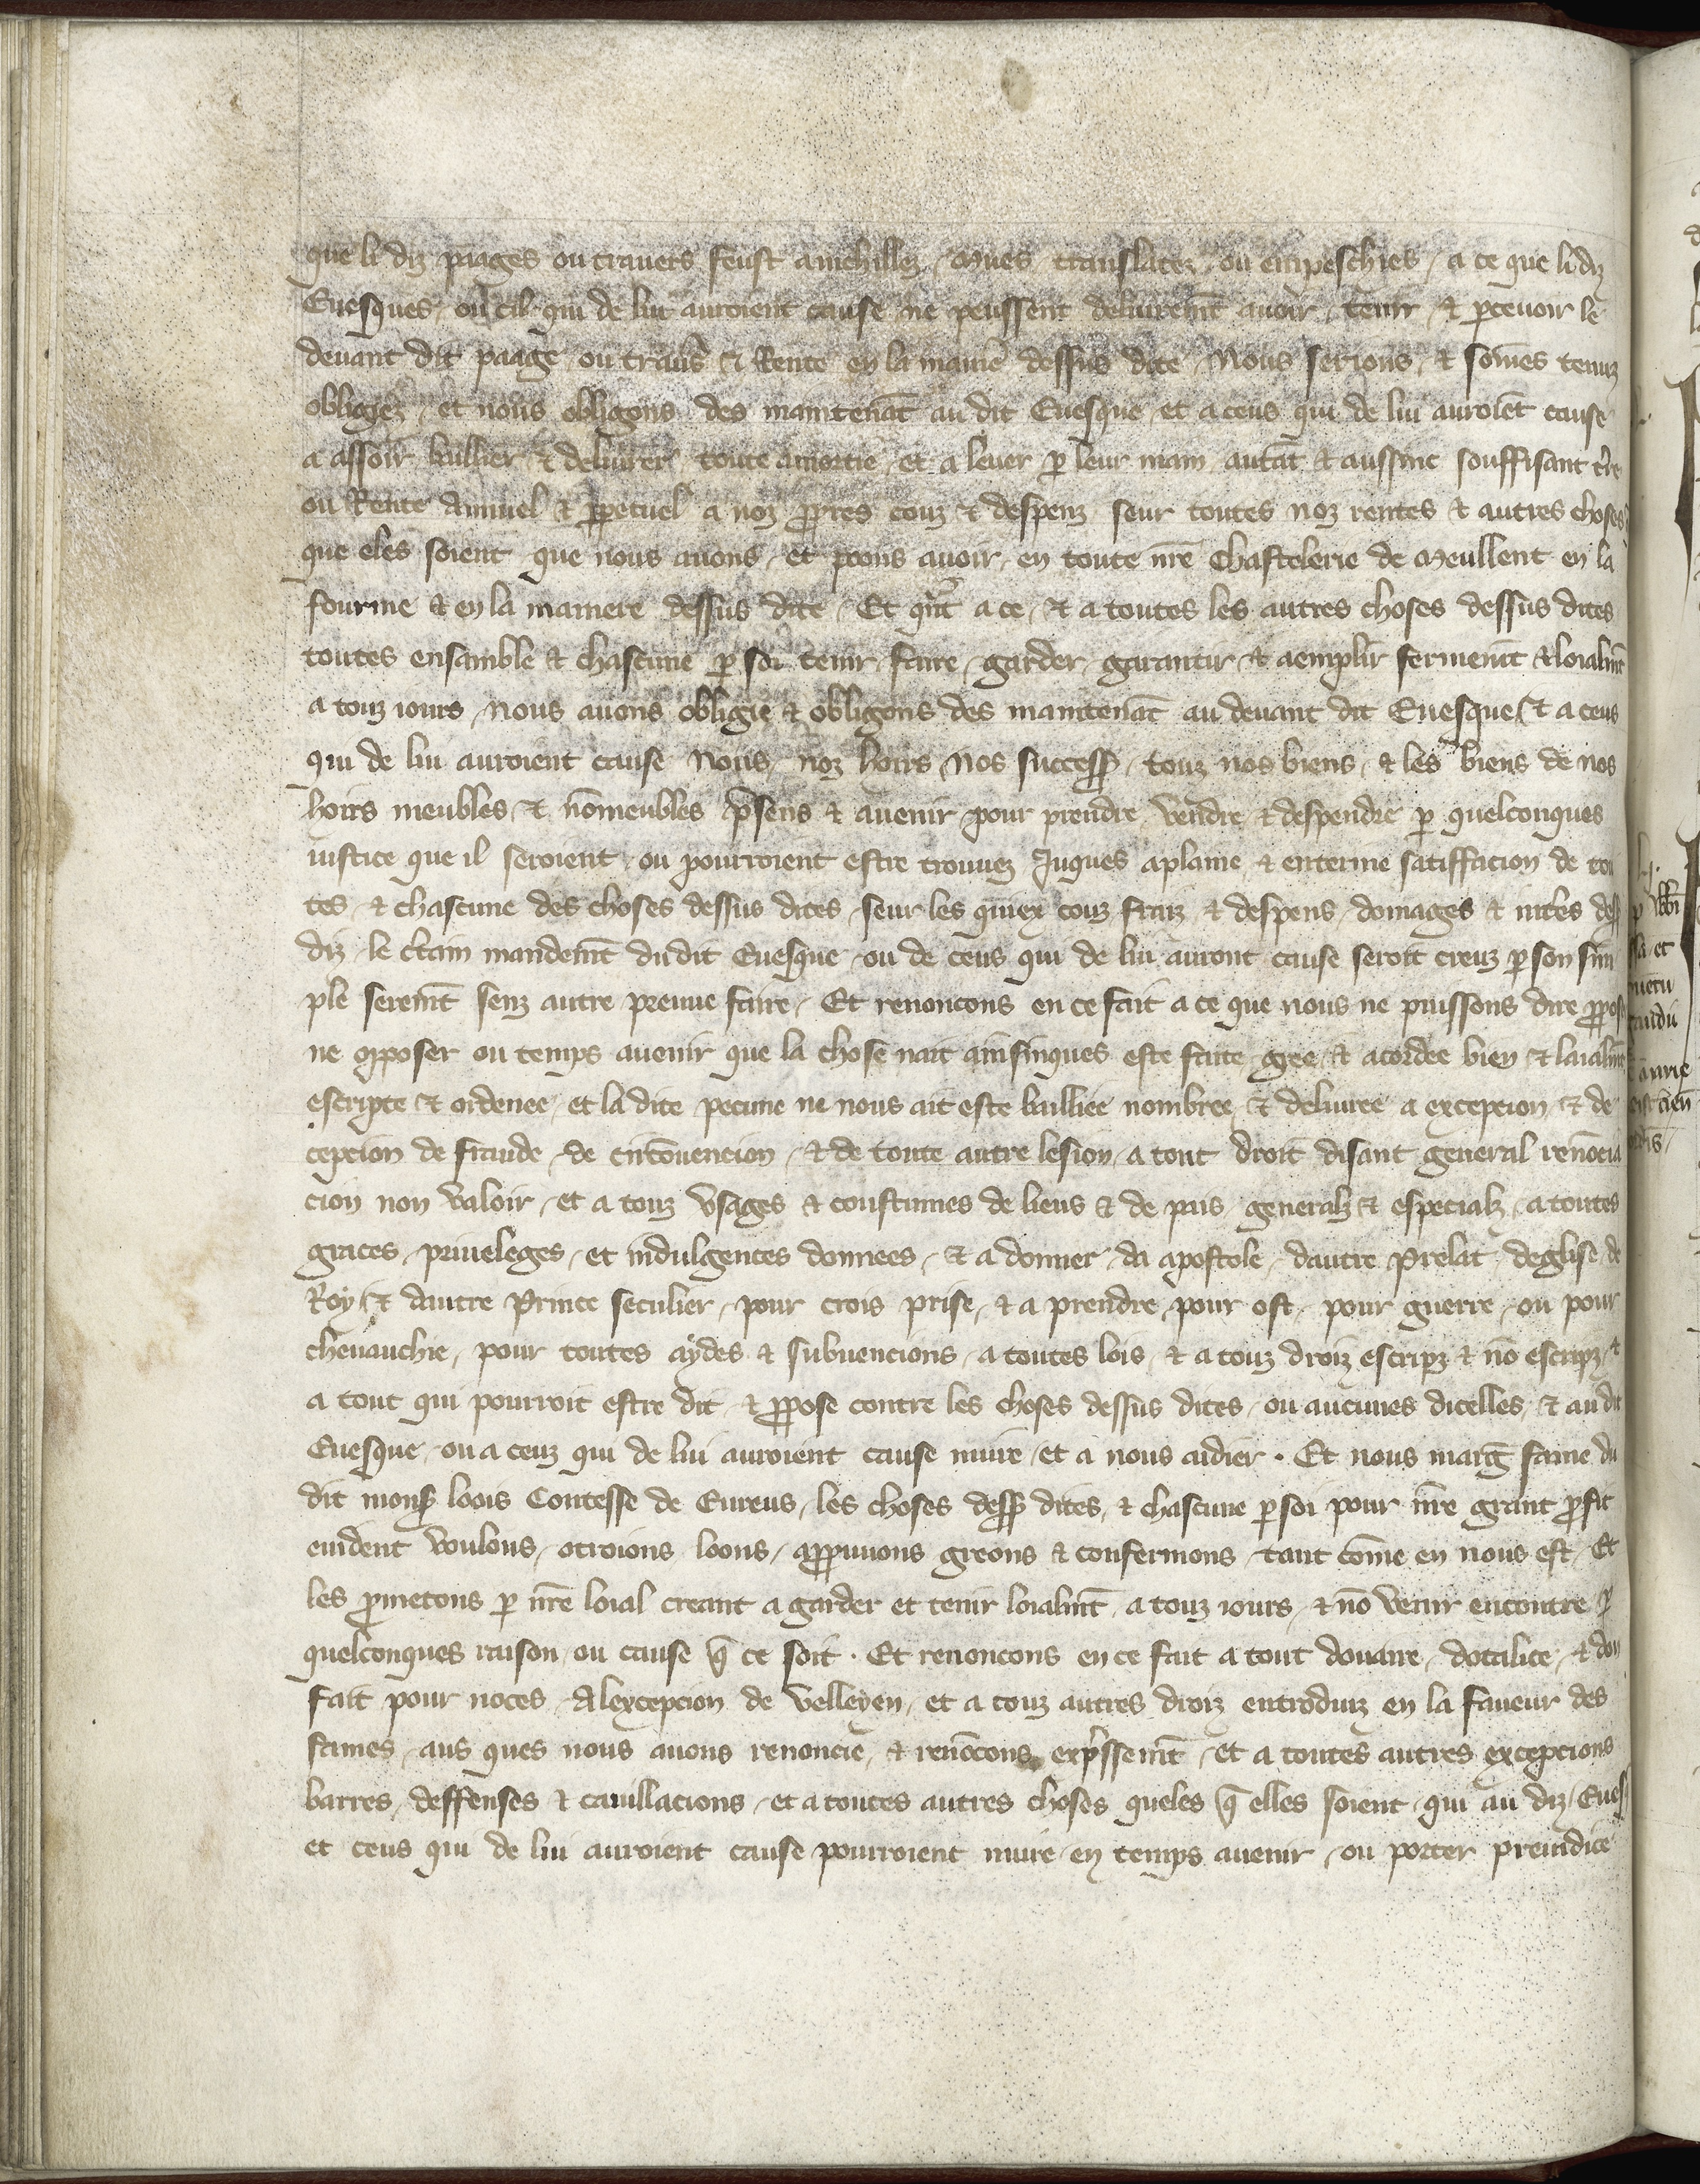 que li diz paages ou travers feust anichillez, Mues translatez ou empeschies, a ce que li diz
Euesques, ou cil qui de lui auroient cause ne peussent deliurem̄t auoir, tenir, & p̱ceuoir le
deuant dit paage ou trau̓s & Rente en la manie dessus dite, Nous serions, & som̄es tenuz
obligiez, et nous obligons des maintenāt au dit Euesque, et a ceus qui de lui auroiēt cause
a assoir baillier & deliurer toute amortie, et a leuer p̱ leur main autāt & aussinc souffisant t̄re
ou Rente Annuel & p̱petuel a noz p̱pres couz & despenz seur toutes noz rentes & autres choses
que eles soient que nous auons, et p̱ons auoir, en toute nr̄e Chastelerie de Meullent en la
fourme & en la maniere dessus dite, Et quāt a ce, & a toutes les autres choses dessus dites
toutes ensamble & chascune p̱ soi tenir, faire, garder, garantir, & aemplir fermem̄t & loialm̄t
a touz iours, Nous auons obligie & obligons des maintenāt au deuant dit Euesque, & a ceus
qui de lui auroient cause Nous, noz hoirs, Nos success̄, touz nos biens, & les biens de nos
hoirs meubles, & nōmeubles p̄sens & auenir pour prendre vendre & despendre p̱ quelconques
iustice que il seroient, ou pourroient estre trouuez Juques aplaine & enterine satiffacion de tou
tes, & chascune des choses dessus dites, seur les quiex couz fraiz & despens, domages & int̄es dess̄
diz, le c̄tain mandem̄t du dit Euesque, ou de ceus qui de lui auront cause seroit creuz p̱ son sim
ple serem̄t senz autre preuue faire, Et renoncons en ce fait a ce que nous ne puissons dire p̱pos̄
ne opposer ou temps auenir que la chose nait ainsinques este faite gree, & acordee bien & laialm̄t
escripte & ordenee, et la dite pecune ne nous ait este bailliee nombree, & deliuree a excepcion, & de
cepcion de fraude, de circōuencion, & de toute autre lesion, a tout droit disant general renōcia
cion non valoir, et a touz vsages & coustumes de lieus & de pais, generalz & especialz, a toutes
graces, priueleges, et indulgences donnees, & a donner, da apostole, dautre Prelat deglise, de
Roy, & dautre Prince seculier, pour crois prise, & a prendre, pour ost, pour guerre, ou pour
cheuauchie, pour toutes aydes & subuencions, a toutes lois, & a touz droiz escripz & nō escripz, &
a tout qui pourroit estre dit, & p̱pose contre les choses dessus dites, ou aucunes dicelles, & au dit
Euesque, ou a ceuz qui de lui auroient cause nuire, et a nous aidier. Et nous marḡ fame du
dit mons̄ loois Contesse de Eureus, les choses dess̄ dites, & chascune p̱ soi pour nr̄e grant p̱fit
euident voulons, otroions loons, app̱uuons greons & confermons, tant cōme en nous est, Et
les p̱metons p̱ nr̄e loial creant a garder et tenir loialm̄t, a touz iours, & nō venir encontre p̱
quelconques raison, ou cause q̄ ce soit. Et renoncons en ce fait a tout douaire, dotalice, & don
fait pour noces, Alexcepcion de velleyen, et a touz autres droiz entroduiz en la faueur des
fames, aus ques nous auons renoncie, & renōcons exp̄ssem̄t, et a toutes autres excepcions
barres, deffenses & cauillacions, et a toutes autres choses queles q̄ elles soient, qui au diz Eues̄
et ceus qui de lui auroient cause pourroient nuire en temps auenir, ou porter preiudice